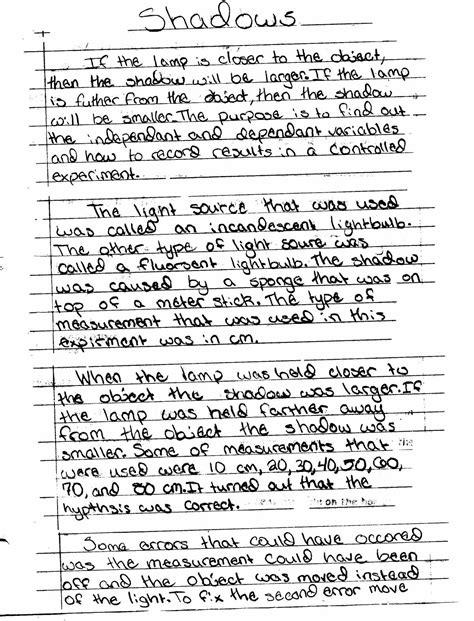 Shadows
If the lamp is closer to the object,
then the shadow will be larger. If the lamp
is futher from the object, then the shadow
will be smaller. The purpose is to find out
the independant and dependant variables
and how to record results in a controlled
experiment.
The light source that was used
was called an incandescent lightbulb.
The other type of light soure was
called a fluorsent lightbulb. The shadow
was caused by a sponge that was on
top of a meter stick. The type of
measurement that was used in this
expirment was in cm.
When the lamp was held closer to
the object the shadow was larger. If
the lamp was held farther away
from the object the shadow was
smaller. Some of measurements that
were used were 10 cm, 20, 30, 40, 50, 60,
70, and 80 cm. It turned out that the
hypthsis was correct.
on the
Some errors that could have occored
was the measurement could have been
off and the object was moved instead
of the light. To fix the second error move